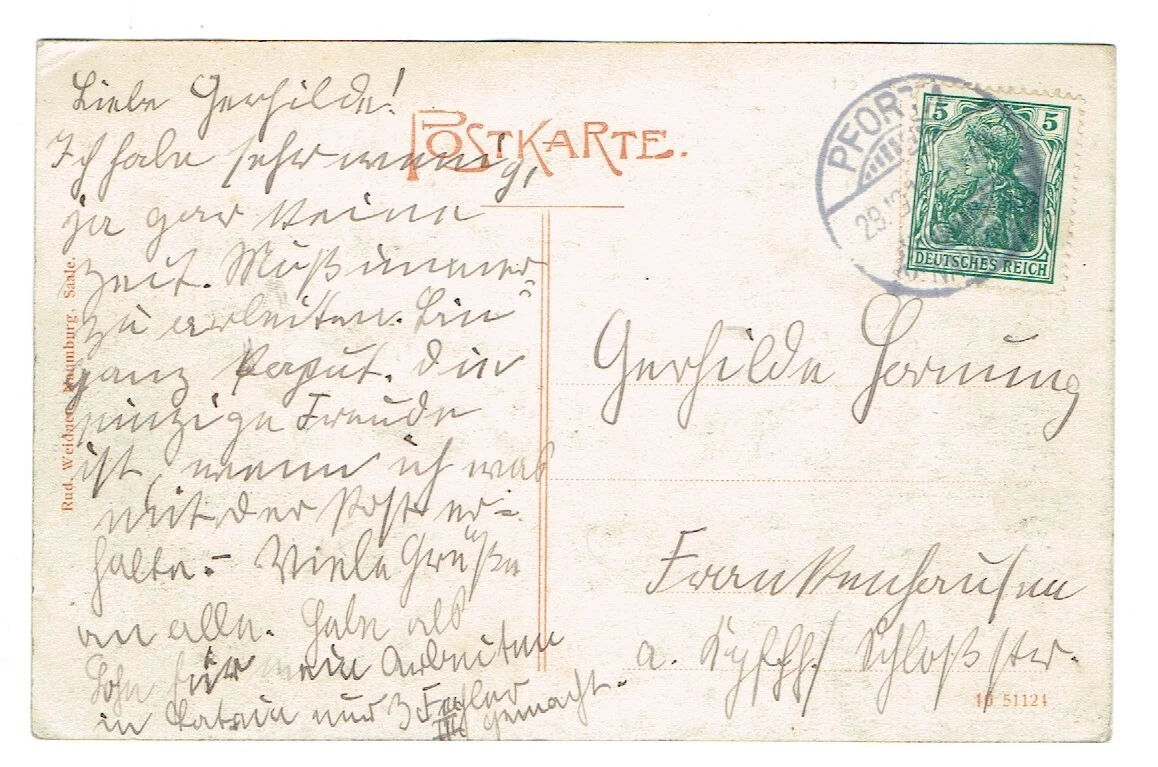 Liebe Gerhilde!
Ich habe sehr wenig,
ja gar keine
Zeit. Muß immer
zu arbeiten. Bin
ganz kaput. Die
einzige Freude
ist, wenn ich was
mit der Post er-
halte. – Viele Grüße
an alle. Habe als
Lohn für mein Arbeiten
in Latein nur 3 Fehler gemacht.
III
POSTKARTE.
Rud. Weidner, Naumburg, Saale.
PFORTA
29.12
5 5
DEUTSCHES REICH
Gerhilde Hornung
Frankenhausen
a. Kyffh/ Schloßstr.
10 51124